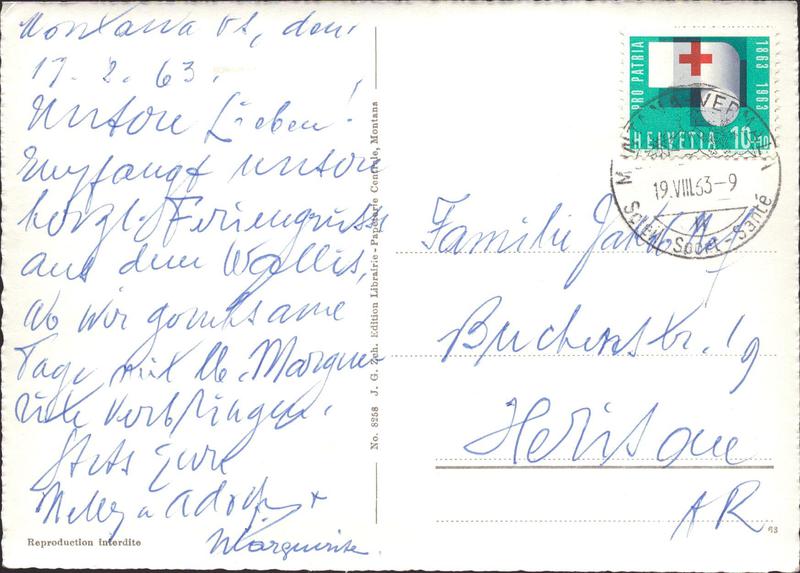 Montana Vs, den
17. 8. 63.
Unsere Lieben!
Empfangt unsere
herzl. Feriengrüsse
aus dem Wallis,
wo wir gemeinsame
Tage mit Margue-
rite verbringen.
Stets Eure
Nelly u Adolf +
Marguerite
Reproduction interdite
No. 8258 J. G. Zeh. Edition Librairie-Papeterie Centrale, Montana
PRO PATRIA 1863 1963
HELVETIA 10+10
MONTANA-VERMALA
19.VIII.63-9
Soleil-Sport-Santé
Familie Jakob
Buchenstr. 19
Herisau
AR
63